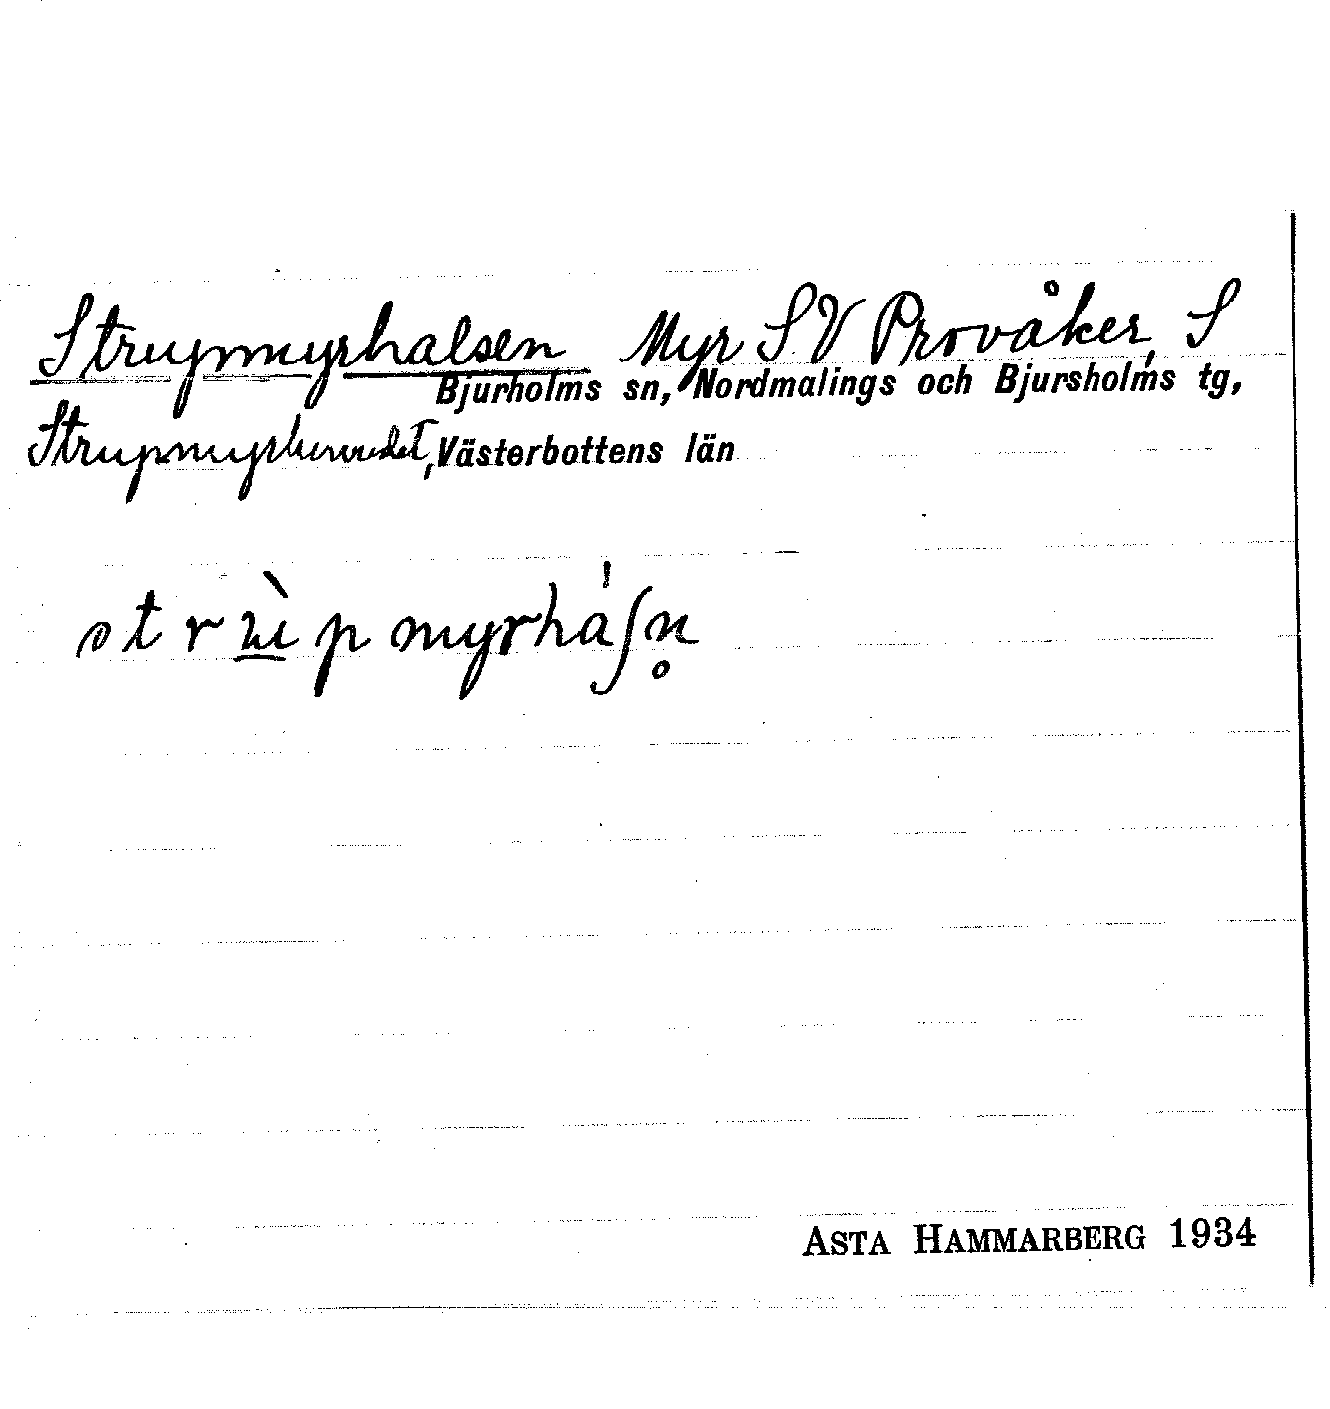 Strupmyrhalsen Myr SV Provåker, S
Bjurholms sn, Nordmalings och Bjursholms tg,
Strupmyrhuvudet, Västerbottens län
strù̲pmyrháʃn̥
ASTA HAMMARBERG 1934